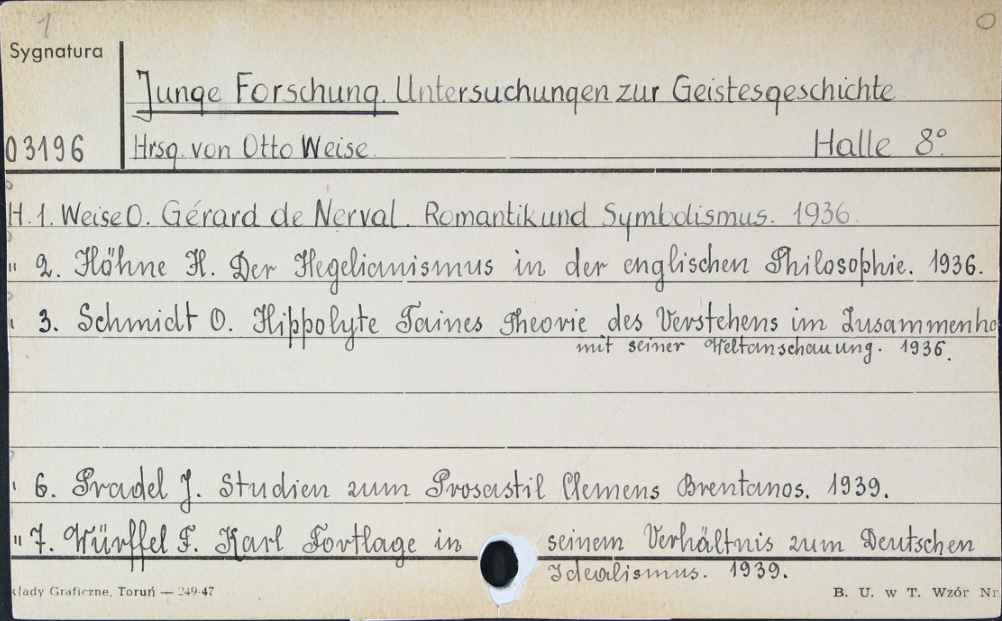 1
0
Sygnatura
Junge Forschung. Untersuchungen zur Geistesgeschichte
03196
Hrsg. von Otto Weise. Halle 8°.
H. 1. Weise O. Gérard de Nerval. Romantik und Symbolismus. 1936.
" 2. Höhne H. Der Hegelianismus in der englischen Philosophie. 1936.
" 3. Schmidt O. Hippolyte Taines Theorie des Verstehens im Zusammenha
mit seiner Weltanschauung. 1936.
" 6. Pradel J. Studien zum Prosastil Clemens Brentanos. 1939.
" 7. Würffel F. Karl Fortlage in seinem Verhältnis zum Deutschen
Idealismus. 1939.
kłady Graficzne, Toruń — 249-47
B. U. w T. Wzór Nr